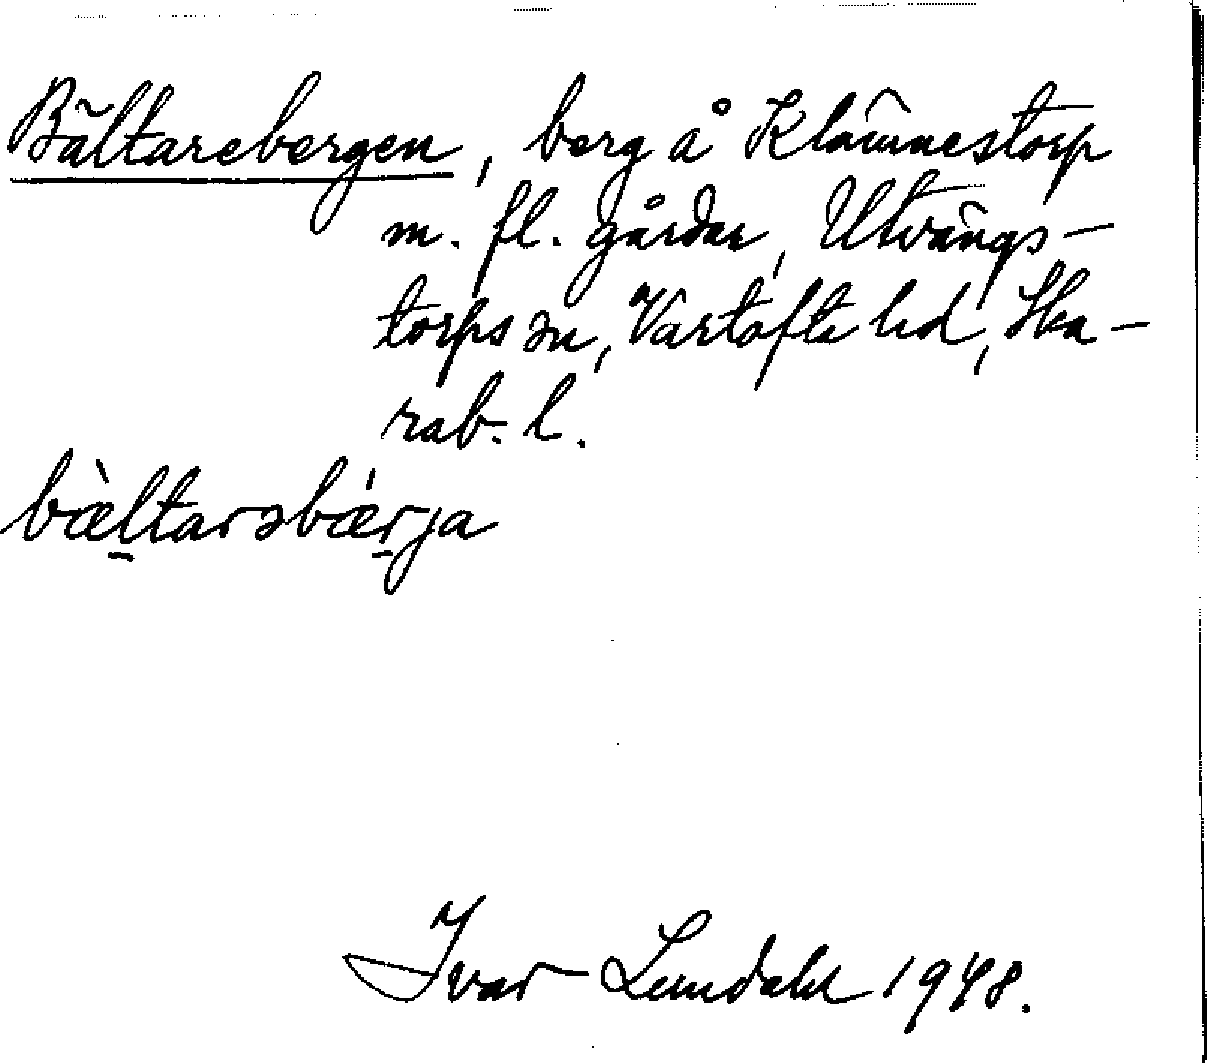 Bältarebergen, berg å Klämmestorp
m. fl. gårdar, Utvängs-
torps sn, Vartofta hd, Ska-
rab. l.
bæ̀l̠tarəbǽr̠ja
Ivar Lundahl 1948.